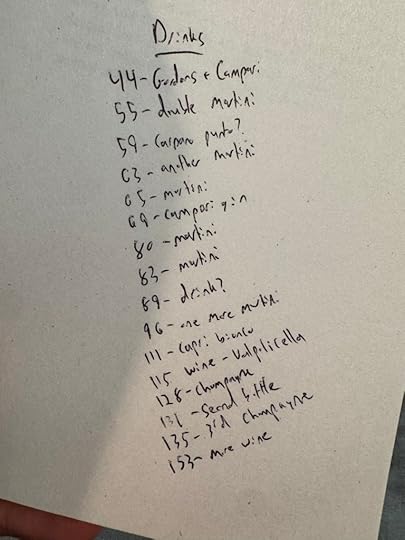 Drinks
44 - Gordons + Campari
55 - double martini
59 - Carpano punto?
63 - another martini
65 - martini
69 - Campari gin
80 - martini
83 - martini
89 - drink?
96 - one more martini
111 - Capri bianco
115 wine - Valpolicella
128 - champagne
131 - Second bottle
135 - 3rd champagne
153 - more wine